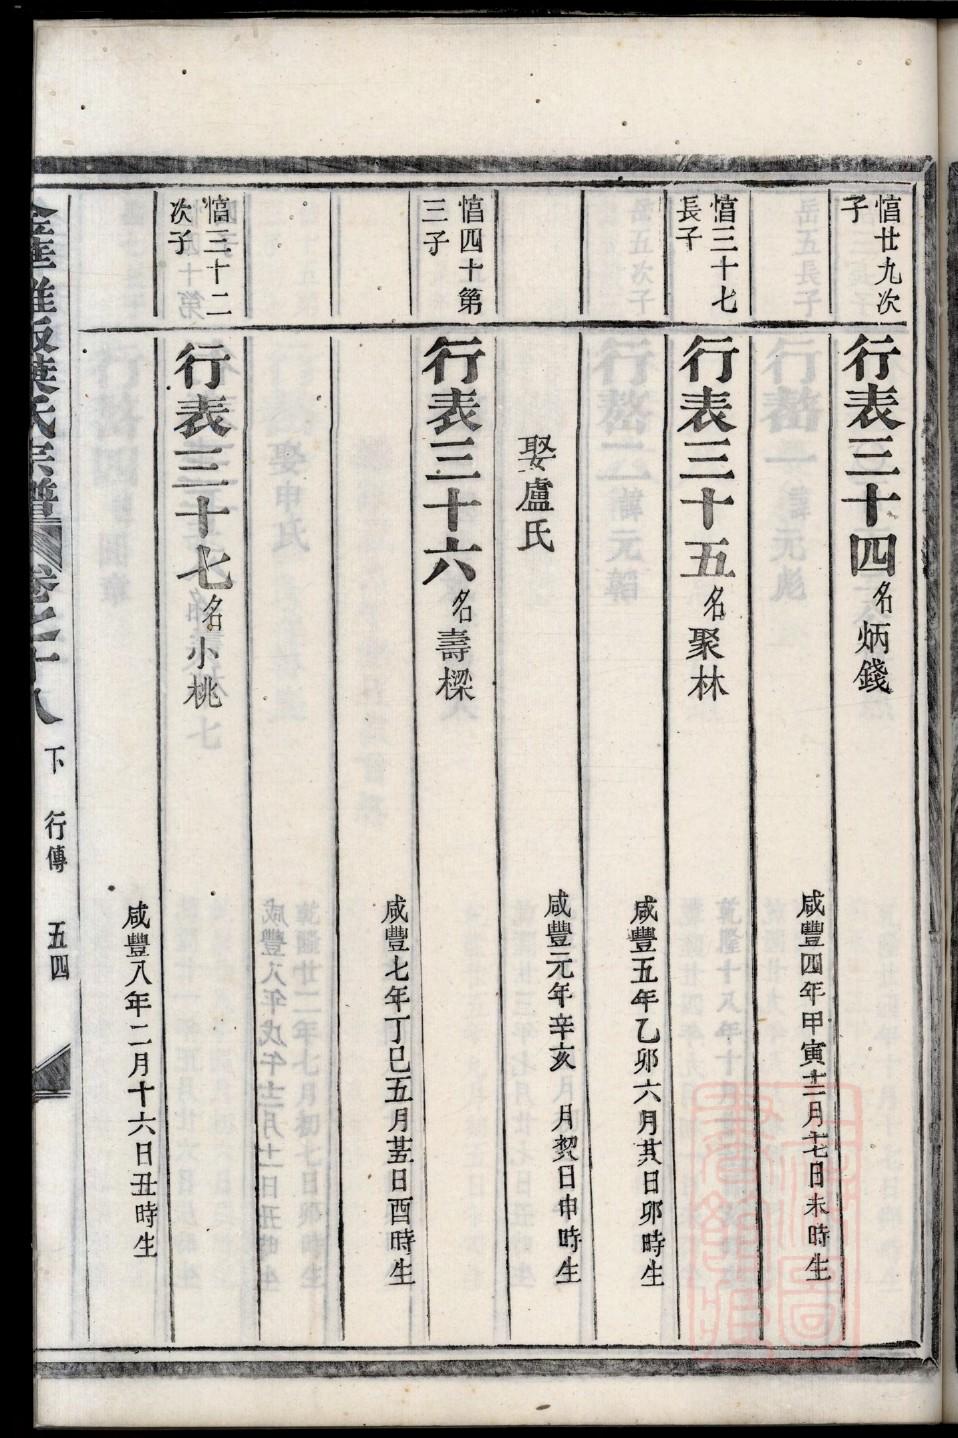 愊廿九次
子
行表三十四名炳錢
咸豐四年甲寅十二月十七日未時生
愊三十七
長子
行表三十五名聚林
咸豐五年乙卯六月廿八日卯時生
娶盧氏
咸豐元年辛亥 月初四日申時生
愊四十第
三子
行表三十六名壽樑
咸豐七年丁巳五月廿五日酉時生
愊三十二
次子
行表三十七名小桃
咸豐八年二月十六日丑時生
葉氏宗譜 卷之十八 下 行傳 五四